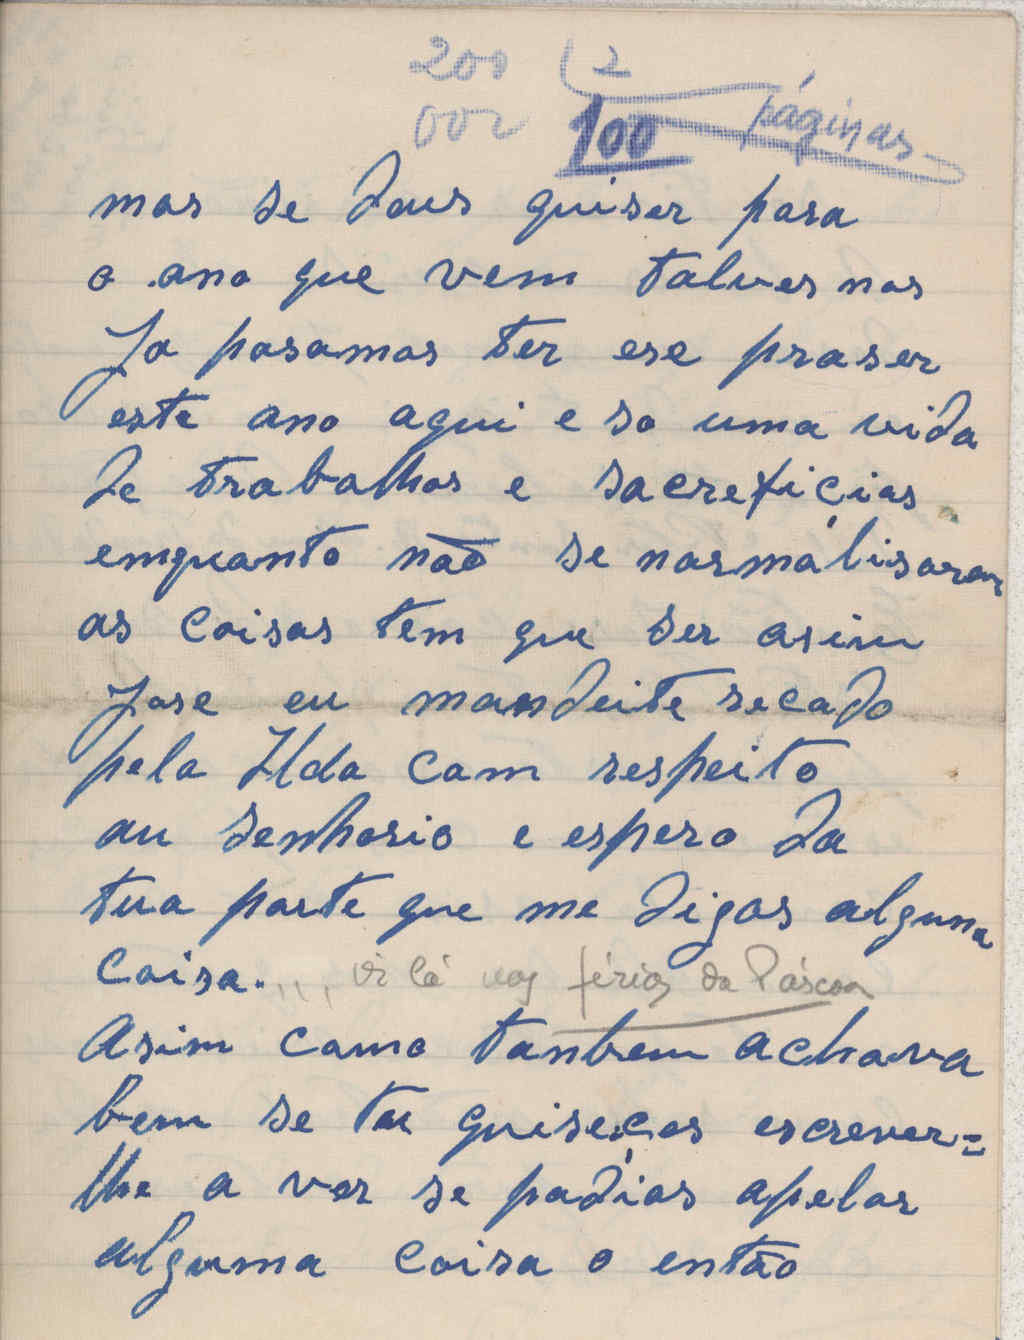 200 2
002 100 páginas
mas se Deus quiser para
o ano que vem talves nos
Ja posamos ter ese praser
este ano aqui e so uma vida
de trabalhos e sacreficios
emquanto não se normálisarem
as coisas tem que ser asim
Jose eu mandeite recado
pela Ilda com respeito
au senhorio e espero da
tua parte que me digas alguma
coisa. ... vi lá nas férias da Páscoa
Asim como tanbem achava
bem se tu quiseces escrever=
lhe a ver se podias apelar
alguma coisa o então